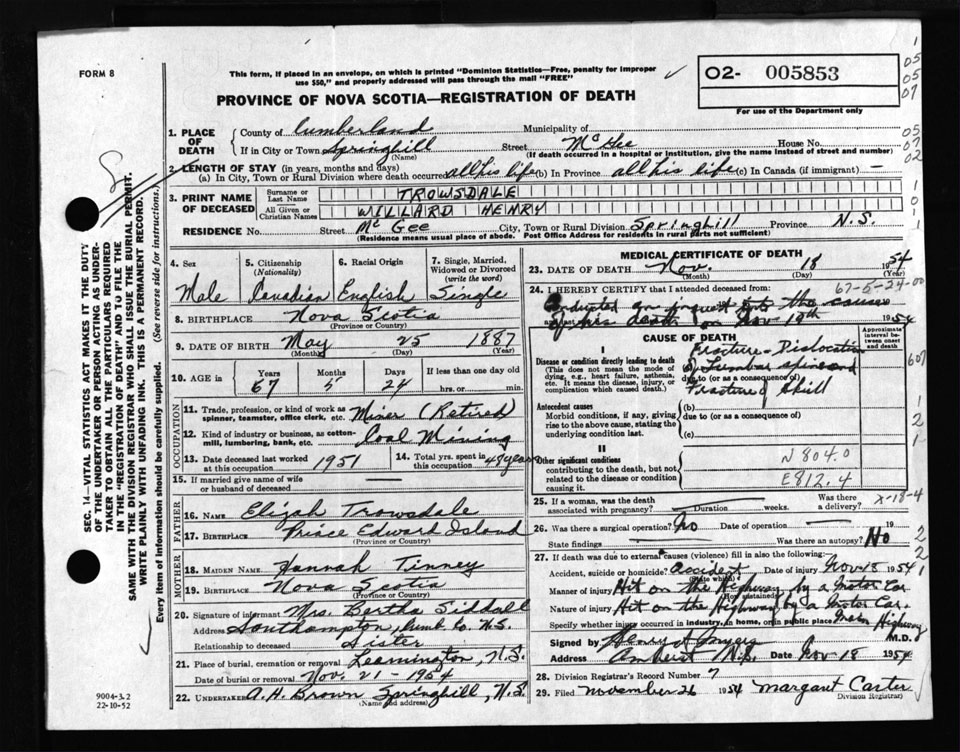 FORM 8
This form, if placed in an envelope, on which is printed "Dominion Statistics—Free, penalty for improper
use $50," and properly addressed will pass through the mail "FREE"
02- 005853
For use of the Department only
05
05
07
PROVINCE OF NOVA SCOTIA—REGISTRATION OF DEATH
1. PLACE OF DEATH
County of Cumberland Municipality of
If in City or Town Springhill (Name) Street McGee House No.
(If death occurred in a hospital or institution, give the name instead of street and number)
05
07
02
2. LENGTH OF STAY (in years, months and days)
(a) In City, Town or Rural Division where death occurred all his life (b) In Province all his life (c) In Canada (if immigrant) —
3. PRINT NAME OF DECEASED
Surname or Last Name TROWSDALE
All Given or Christian Names WILLARD HENRY
RESIDENCE No. Street McGee City, Town or Rural Division Springhill Province N.S.
(Residence means usual place of abode. Post Office Address for residents in rural parts not sufficient)
SEC. 14—VITAL STATISTICS ACT MAKES IT THE DUTY
OF THE UNDERTAKER OR PERSON ACTING AS UNDER-
TAKER TO OBTAIN ALL THE PARTICULARS REQUIRED
IN THE "REGISTRATION OF DEATH" AND TO FILE THE
SAME WITH THE DIVISION REGISTRAR WHO SHALL ISSUE THE BURIAL PERMIT.
WRITE PLAINLY WITH UNFADING INK. THIS IS A PERMANENT RECORD.
Every item of information should be carefully supplied. (See reverse side for instructions.)
4. Sex Male
5. Citizenship (Nationality) Canadian
6. Racial Origin English
7. Single, Married, Widowed or Divorced (write the word) Single
8. BIRTHPLACE Nova Scotia
(Province or Country)
9. DATE OF BIRTH May 25 1887
(Month) (Day) (Year)
10. AGE in Years 67 Months 5 Days 24 If less than one day old
hrs. or min.
OCCUPATION
11. Trade, profession, or kind of work as spinner, teamster, office clerk, etc. Miner (Retired)
12. Kind of industry or business, as cotton-mill, lumbering, bank, etc. Coal Mining
13. Date deceased last worked at this occupation 1951
14. Total yrs. spent in this occupation 48 years
15. If married give name of wife or husband of deceased —
FATHER
16. NAME Elijah Trowsdale
17. BIRTHPLACE Prince Edward Island
(Province or Country)
MOTHER
18. MAIDEN NAME Hannah Tinney
19. BIRTHPLACE Nova Scotia
(Province or Country)
20. Signature of informant Mrs. Bertha Siddall
Address Southampton, Cumb Co. N.S.
Relationship to deceased Sister
21. Place of burial, cremation or removal Leamington, N.S.
Date of burial or removal Nov. 21 - 1954
22. UNDERTAKER A.H. Brown Springhill, N.S.
(Name and address)
9004-3.2
22-10-52
MEDICAL CERTIFICATE OF DEATH
23. DATE OF DEATH Nov. 18 1954
(Month) (Day)
24. I HEREBY CERTIFY that I attended deceased from:
67-5-24-00
Conducted an inquest into the cause
of his death on Nov-19th 1954
CAUSE OF DEATH
Approximate interval between onset and death
I
Disease or condition directly leading to death
(This does not mean the mode of dying, e.g., heart failure, asthenia, etc. It means the disease, injury, or complication which caused death.)
Fracture-Dislocation
of Lumbar spine and
due to (or as a consequence of)
Fracture of Skull
607
Antecedent causes
Morbid conditions, if any, giving rise to the above cause, stating the underlying condition last.
(b) due to (or as a consequence of)
(c)
1
2
1
II
Other significant conditions
contributing to the death, but not related to the disease or condition causing it.
N 804.0
E812.4
25. If a woman, was the death associated with pregnancy? — Duration — weeks. Was there a delivery?
X-18-4
26. Was there a surgical operation? No Date of operation — 19
State findings — Was there an autopsy? No
2
27. If death was due to external causes (violence) fill in also the following:
2
Accident, suicide or homicide? Accident (State which) Date of injury Nov-18 1954
1
Manner of injury Hit on the Highway by a Motor Car
(How sustained)
Nature of injury Hit on the Highway by a Motor Car.
Specify whether injury occurred in industry, in home, or in public place Main Highway
Signed by M.D.
Address Amherst N.S. Date Nov-18 1954
28. Division Registrar's Record Number 7
29. Filed November 26 1954 Margaret Carter
Division Registrar